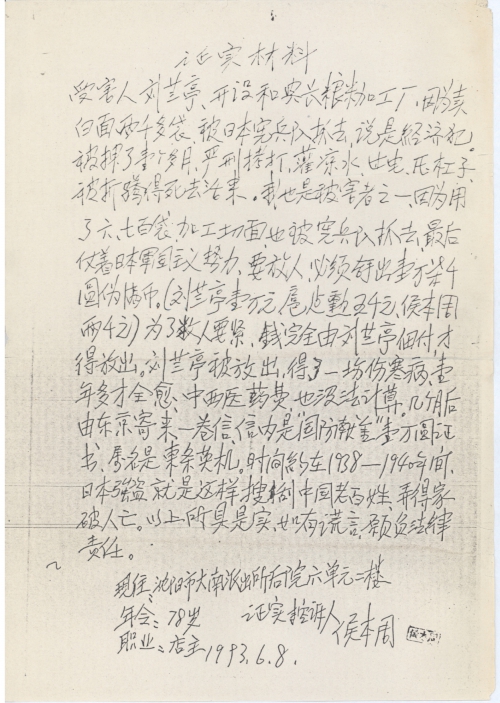 证实材料
受害人刘兰亭、开设和兴长粮米加工厂，因为卖
白面两千多袋、被日本宪兵队抓去，说是经济犯。
被押了壹个月，严刑拷打，灌凉水、过电、压杠子、
被折腾得死去活来。我也是被害者之一，因为用
了六、七百袋加工切面，也被宪兵队抓去，最后
仗着日本軍国主义势力、要放人，必须拿出壹万柒仟
圆伪币。(刘兰亭壹万元、扈 五仟元、侯本周
两仟元)为了救人要紧，钱完全由刘兰亭 付，才
得放出，刘兰亭被放出，得了一场伤寒病，壹
年多才全愈、中西医药费、也没法计算。几个月后
由东京寄来一卷信、信内是"国防献金"壹万圆证
书、属名是東条英机。时间约在1938—1940年间，
日本强盗就是这样搜刮中国老百姓、弄得家
破人亡。以上所具是实，如有谎言、愿负法律
责任。
现住：沈阳市大南派出所后院六单元二楼
年令：78岁 证实控诉人 侯本周
职业：店主 1993.6.8.